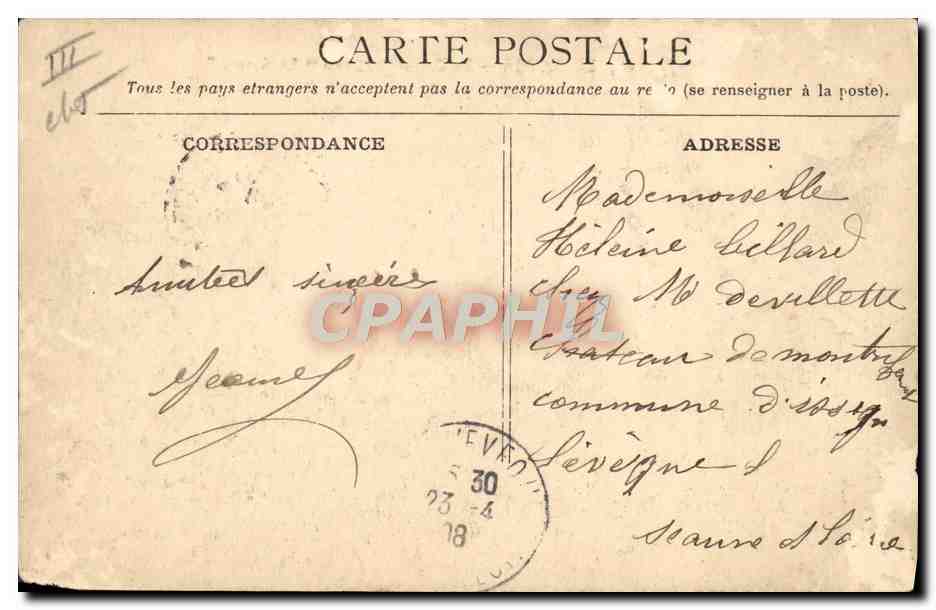 III
CARTE POSTALE
Tous les pays etrangers n'acceptent pas la correspondance au (se renseigner à la poste).
CORRESPONDANCE
ADRESSE
Amitiés sincères
Jeanne
Mademoiselle
Héleine billard
chez Mr devillette
chateau de montrf
commune d'issy
l'évèque
seaune et loire
CPAPHIL
EVEQU
30
23 -4
08